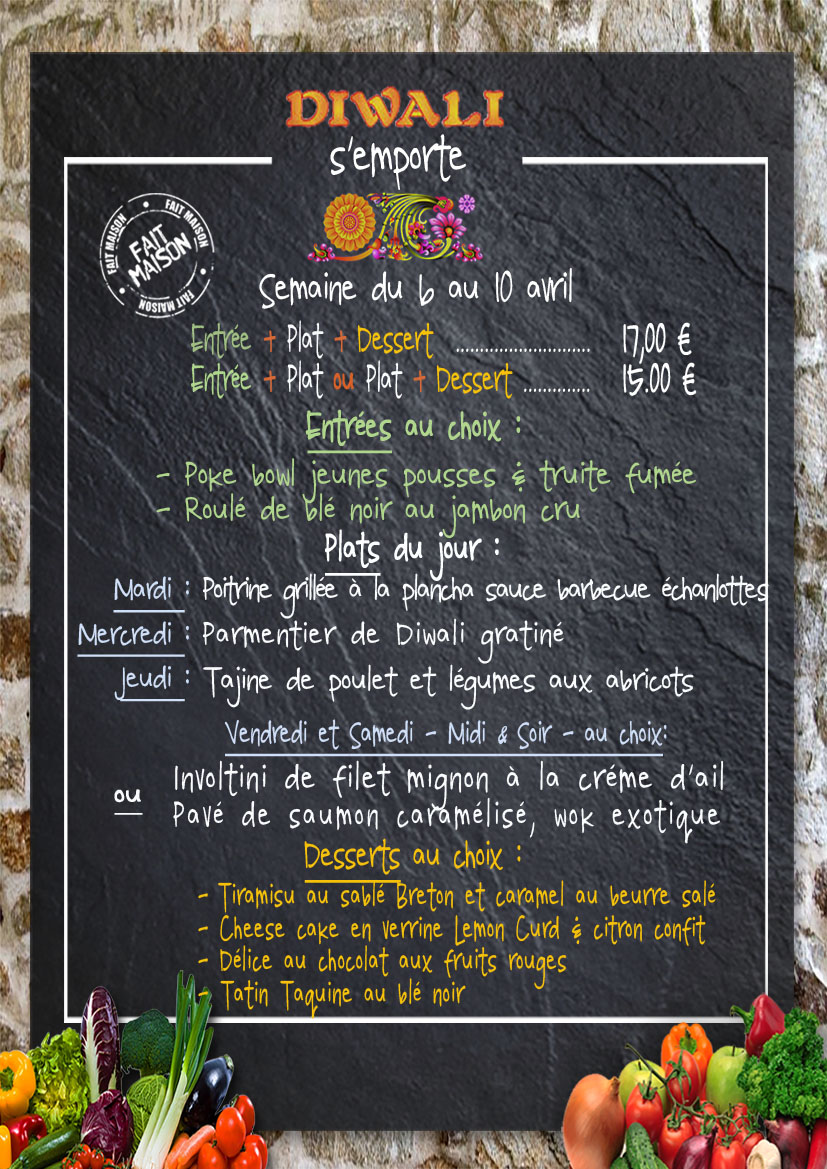 DIWALI
s'emporte
FAIT MAISON
FAIT MAISON
FAIT MAISON
FAIT MAISON
Semaine du 6 au 10 avril
Entrée + Plat + Dessert ............................ 17,00 €
Entrée + Plat ou Plat + Dessert .............. 15.00 €
Entrées au choix :
- Poke bowl jeunes pousses & truite fumée
- Roulé de blé noir au jambon cru
Plats du jour :
Mardi : Poitrine grillée à la plancha sauce barbecue échanlottes
Mercredi : Parmentier de Diwali gratiné
Jeudi : Tajine de poulet et légumes aux abricots
Vendredi et Samedi - Midi & Soir - au choix:
Involtini de filet mignon à la créme d'ail
ou
Pavé de saumon caramélisé, wok exotique
Desserts au choix :
- Tiramisu au sablé Breton et caramel au beurre salé
- Cheese cake en verrine Lemon Curd & citron confit
- Délice au chocolat aux fruits rouges
- Tatin Taquine au blé noir